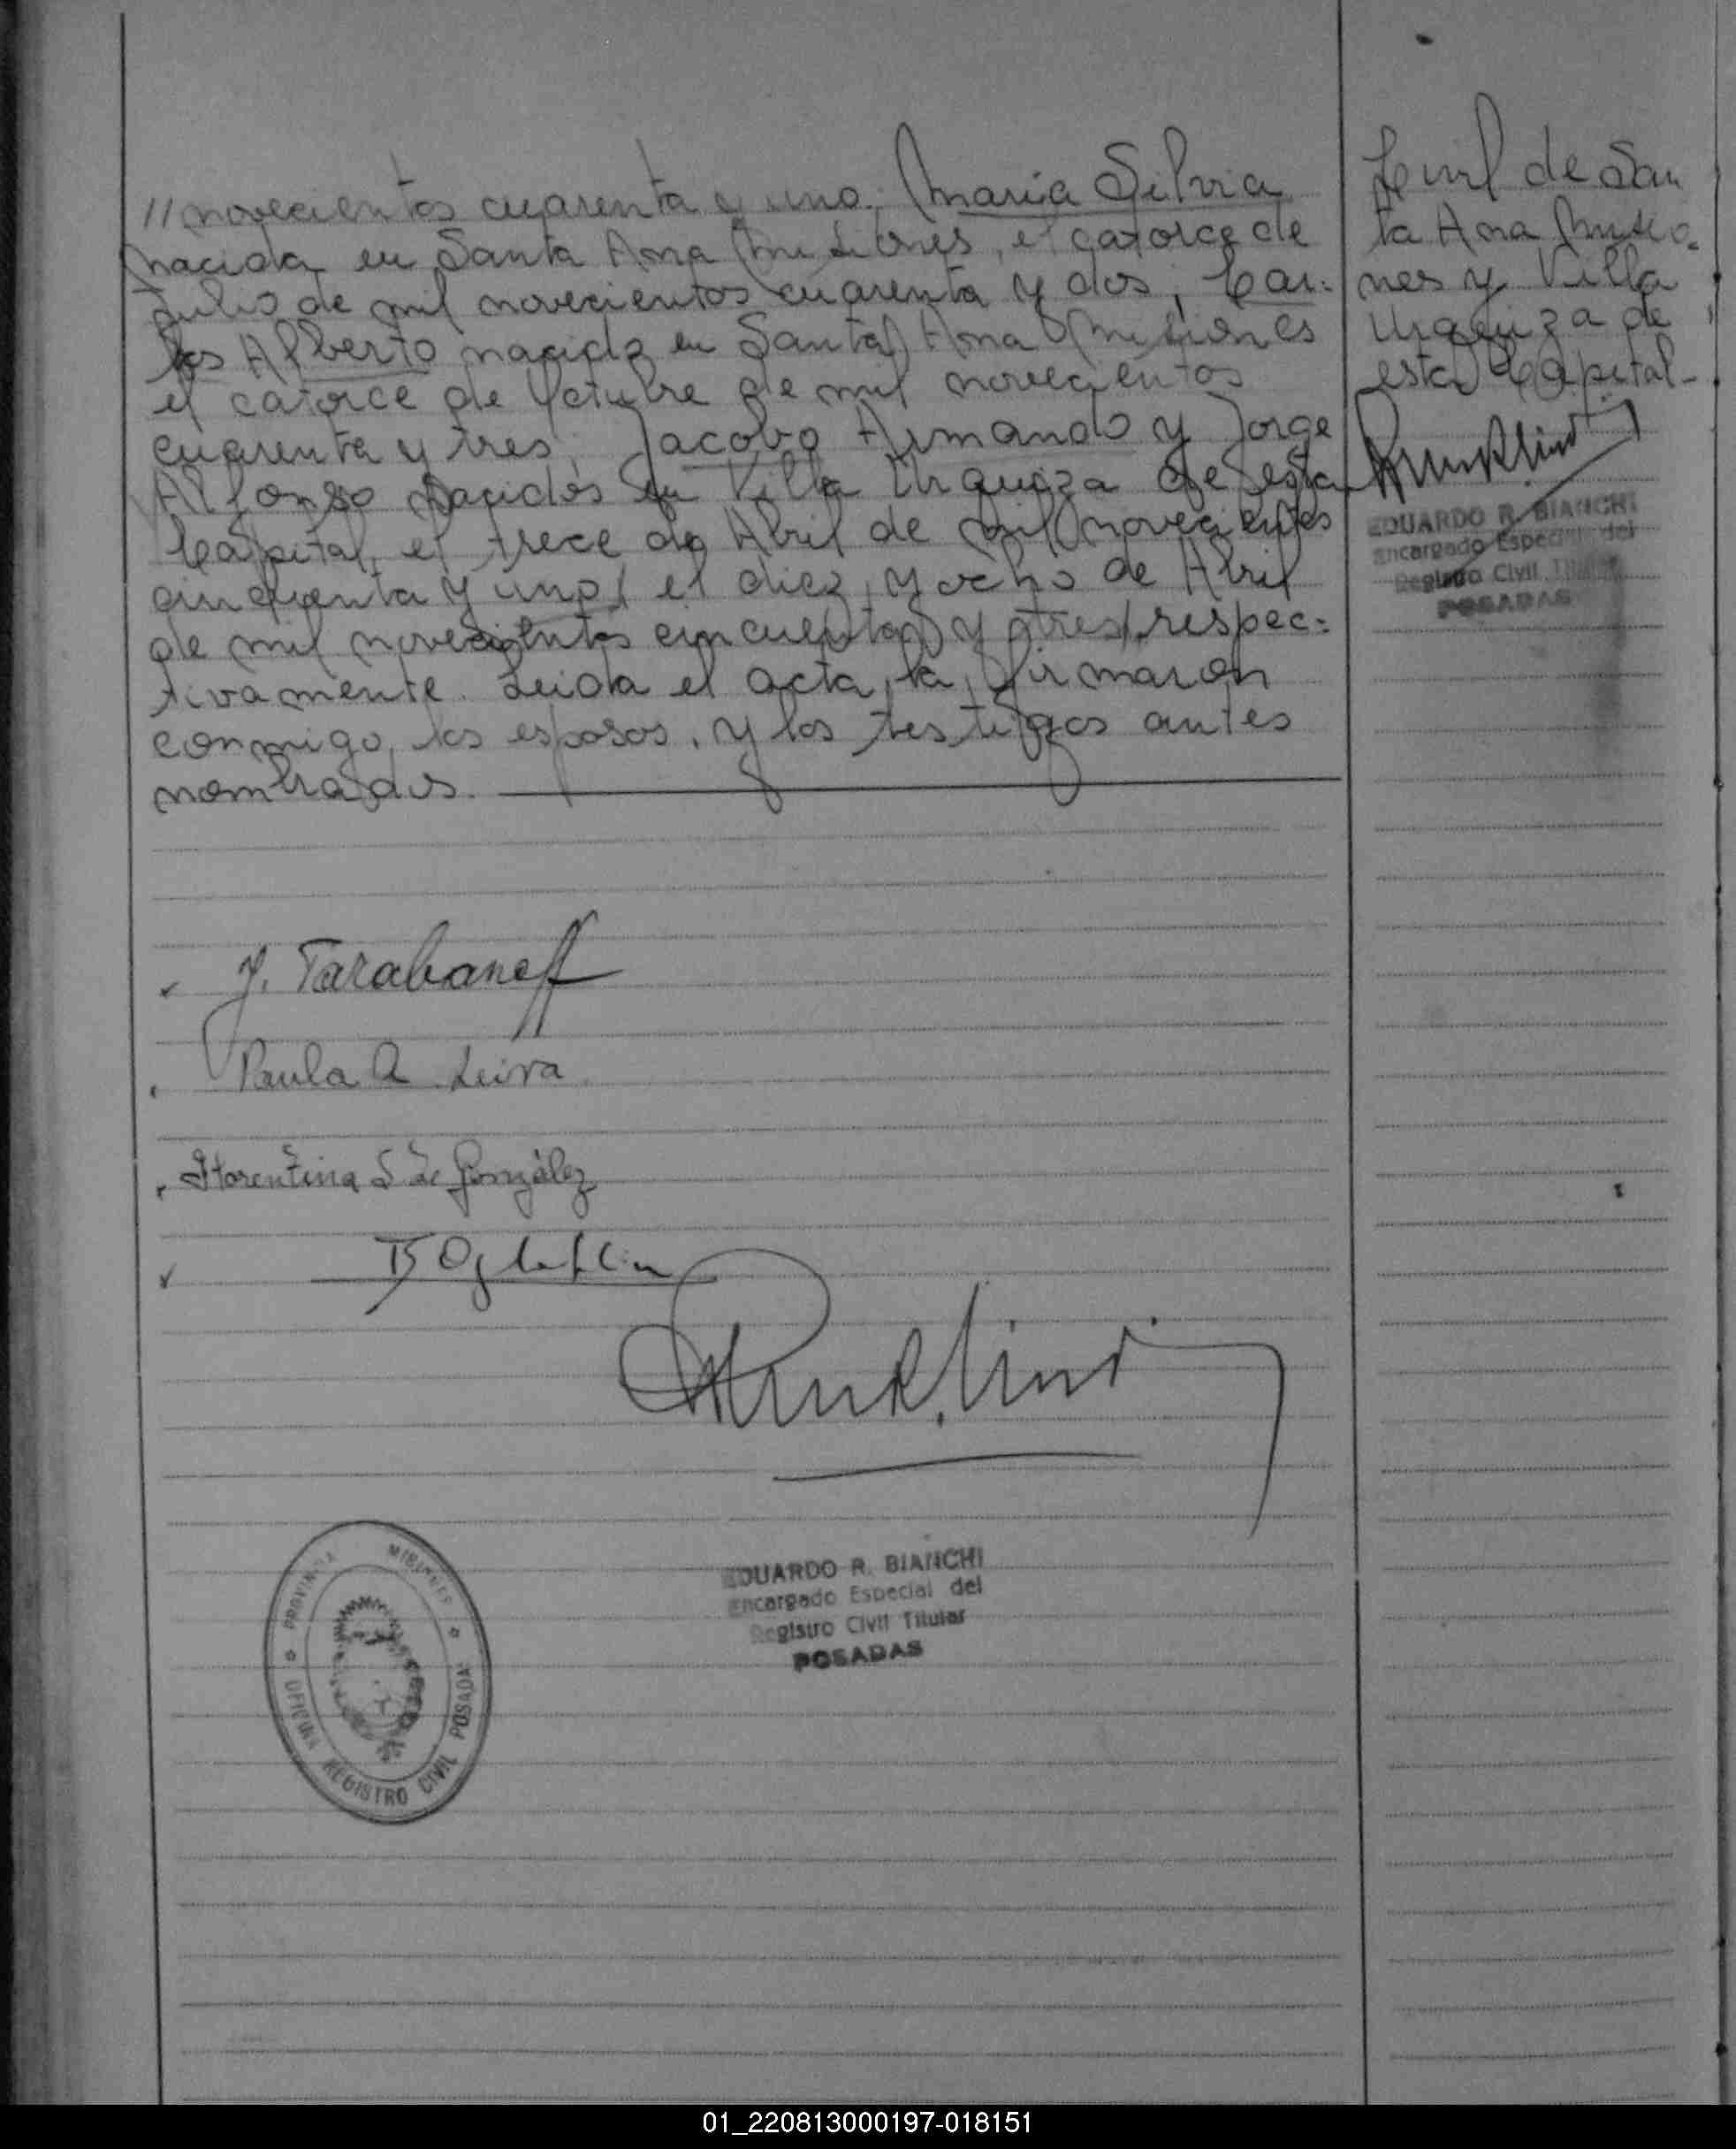 //novecientos cuarenta y uno; María Silvia
nacida en Santa Ana Misiones, el catorce de
Julio de mil novecientos cuarenta y dos; Car=
los Alberto nacido en Santa Ana Misiones
el catorce de Octubre de mil novecientos
cuarenta y tres; Jacobo Armando y Jorge
Alfonso nacidos en Villa Urquiza de esta
Capital, el trece de Abril de mil novecientos
cincuenta y uno, el diez y ocho de Abril
de mil novecientos cincuenta y tres, respec=
tivamente. Leida el acta, la firmaron
conmigo, los esposos, y los testigos antes
nombrados.
Civil de San
ta Ana Misio-
nes y Villa
Urquiza de
esta Capital-
EDUARDO R. BIANCHI
Encargado Especial del
Registro Civil Titular
POSADAS
J. Tarabaneff
Paula A Leiva
Florentina S de González
EDUARDO R. BIANCHI
Encargado Especial del
Registro Civil Titular
POSADAS
PROVINCIA MISIONES
OFICINA REGISTRO CIVIL POSADAS
01_220813000197-018151